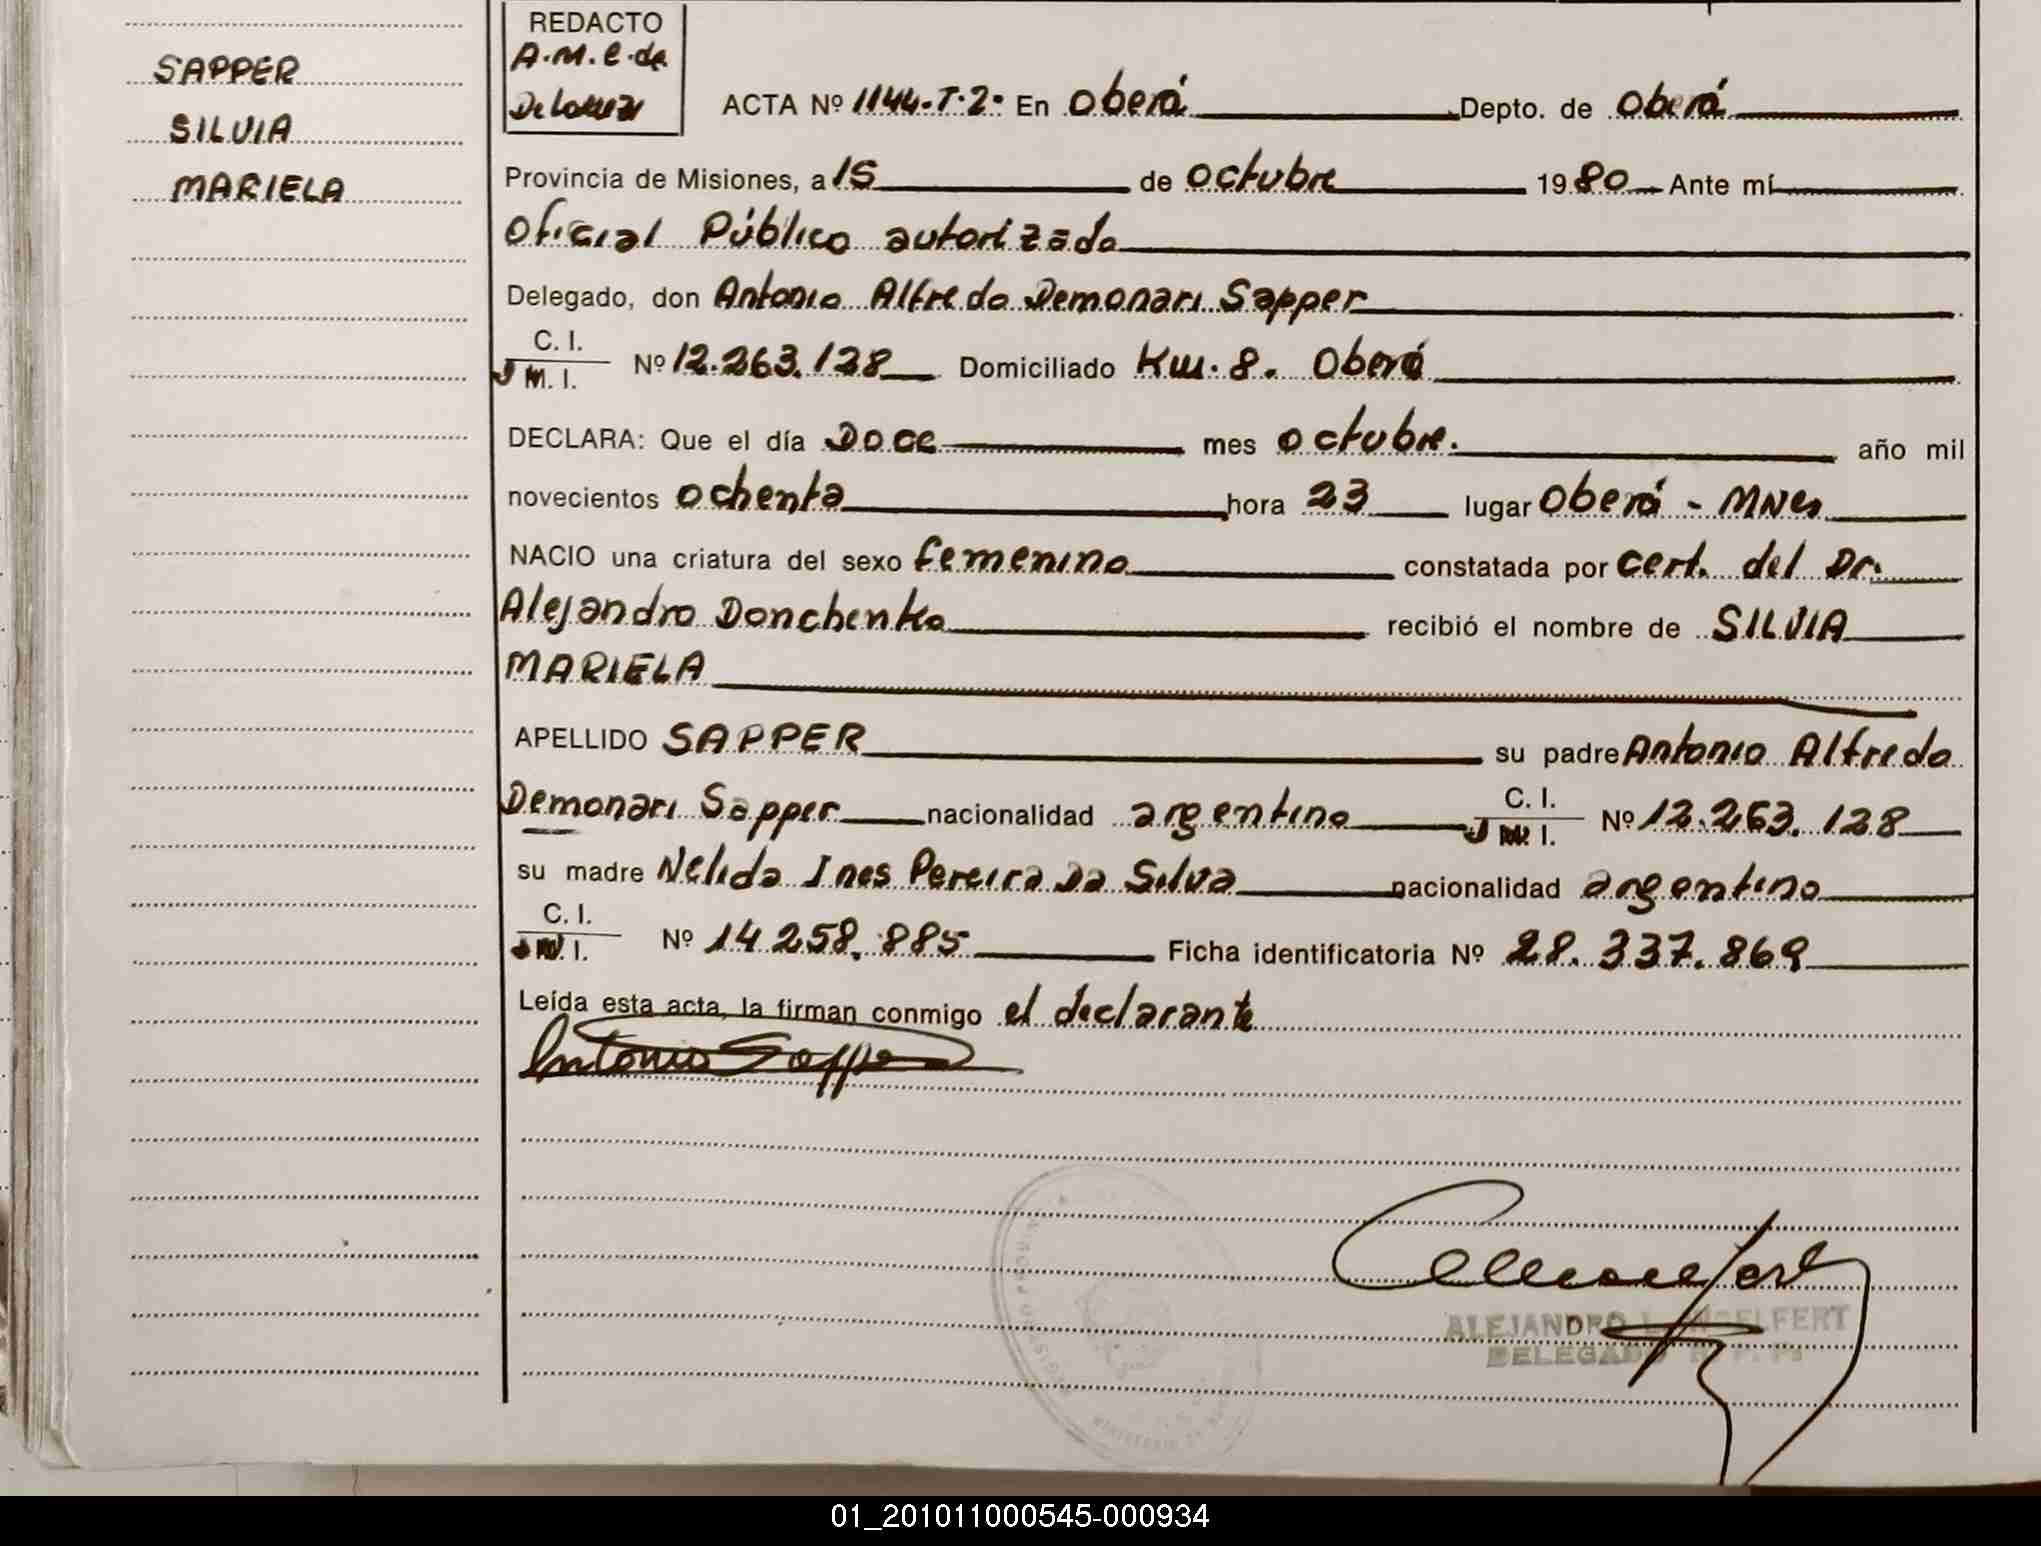 SAPPER
SILVIA
MARIELA
REDACTO
A.M.C. de
ACTA Nº 1144.T.2. En Oberá Depto. de Oberá
Provincia de Misiones, a 15 de octubre 1980 Ante mí
Oficial Público autorizado
Delegado, don Antonio Alfredo Demonari Sapper
C. I.
M. I. Nº 12.263.128 Domiciliado Km. 8. Oberá
DECLARA: Que el día Doce mes octubre. año mil
novecientos ochenta hora 23 lugar Oberá - Mnes
NACIO una criatura del sexo femenino constatada por cert. del Dr.
Alejandro Donchenko recibió el nombre de SILVIA
MARIELA
APELLIDO SAPPER su padre Antonio Alfredo
Demonari Sapper nacionalidad argentino C. I. M. I. Nº 12.263.128
su madre Nélida Ines Pereira Da Silva nacionalidad argentino
C. I.
M. I. Nº 14.258.885 Ficha identificatoria Nº 28.337.869
Leída esta acta, la firman conmigo el declarante
Antonio Sapper
ALEJANDRO
DELEGADO
01_201011000545-000934